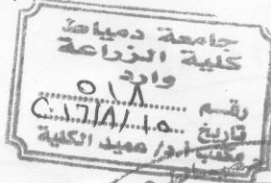 جامعة دمياط
كلية الزراعة
وارد
رقم ٥١٨
تاريخ ٢٠١٦/٨/١٥
مكتب أ.د/ عميد الكلية